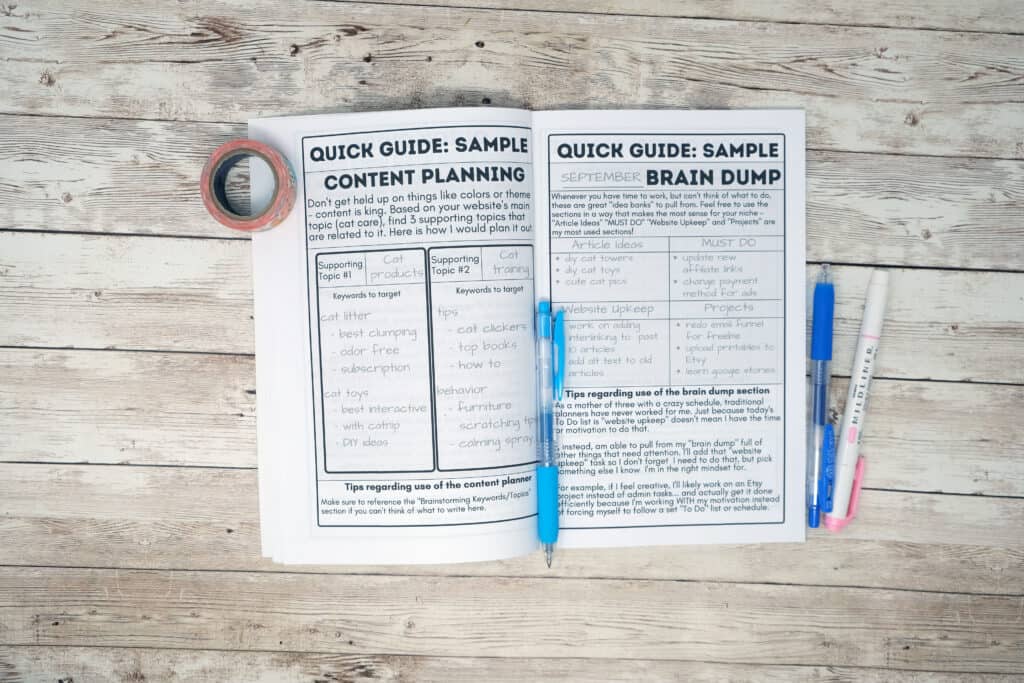 QUICK GUIDE: SAMPLE
CONTENT PLANNING
Don't get held up on things like colors or theme
- content is king. Based on your website's main
topic (cat care), find 3 supporting topics that
are related to it. Here is how I would plan it out
Supporting
Topic #1
Cat
products
Keywords to target
cat litter
- best clumping
- odor free
- subscription
cat toys
- best interactive
- with catnip
- DIY ideas
Supporting
Topic #2
Cat
training
Keywords to target
tips
- cat clickers
- top books
- how to
behavior
- furniture
scratching tips
- calming spray
Tips regarding use of the content planner
Make sure to reference the "Brainstorming Keywords/Topics"
section if you can't think of what to write here.
QUICK GUIDE: SAMPLE
SEPTEMBER BRAIN DUMP
Whenever you have time to work, but can't think of what to do,
these are great "idea banks" to pull from. Feel free to use the
sections in a way that makes the most sense for your niche -
"Article Ideas" "MUST DO" "Website Upkeep" and "Projects" are
my most used sections!
Article Ideas
• diy cat towers
• diy cat toys
• cute cat pics
MUST DO
• update new
affiliate links
• change payment
method for ads
Website Upkeep
work on adding
interlinking to past
10 articles
add alt text to old
articles
Projects
• redo email funnel
for freebie
• upload printables to
Etsy
• learn google stories
Tips regarding use of the brain dump section
As a mother of three with a crazy schedule, traditional
planners have never worked for me. Just because today's
To Do list is "website upkeep" doesn't mean I have the time
or motivation to do that.
instead, am able to pull from my "brain dump" full of
other things that need attention. I'll add that "website
upkeep" task so I don't forget I need to do that, but pick
something else I know I'm in the right mindset for.
For example, if I feel creative, I'll likely work on an Etsy
project instead of admin tasks... and actually get it done
efficiently because I'm working WITH my motivation instead
of forcing myself to follow a set "To Do" list or schedule.
MILDLINER